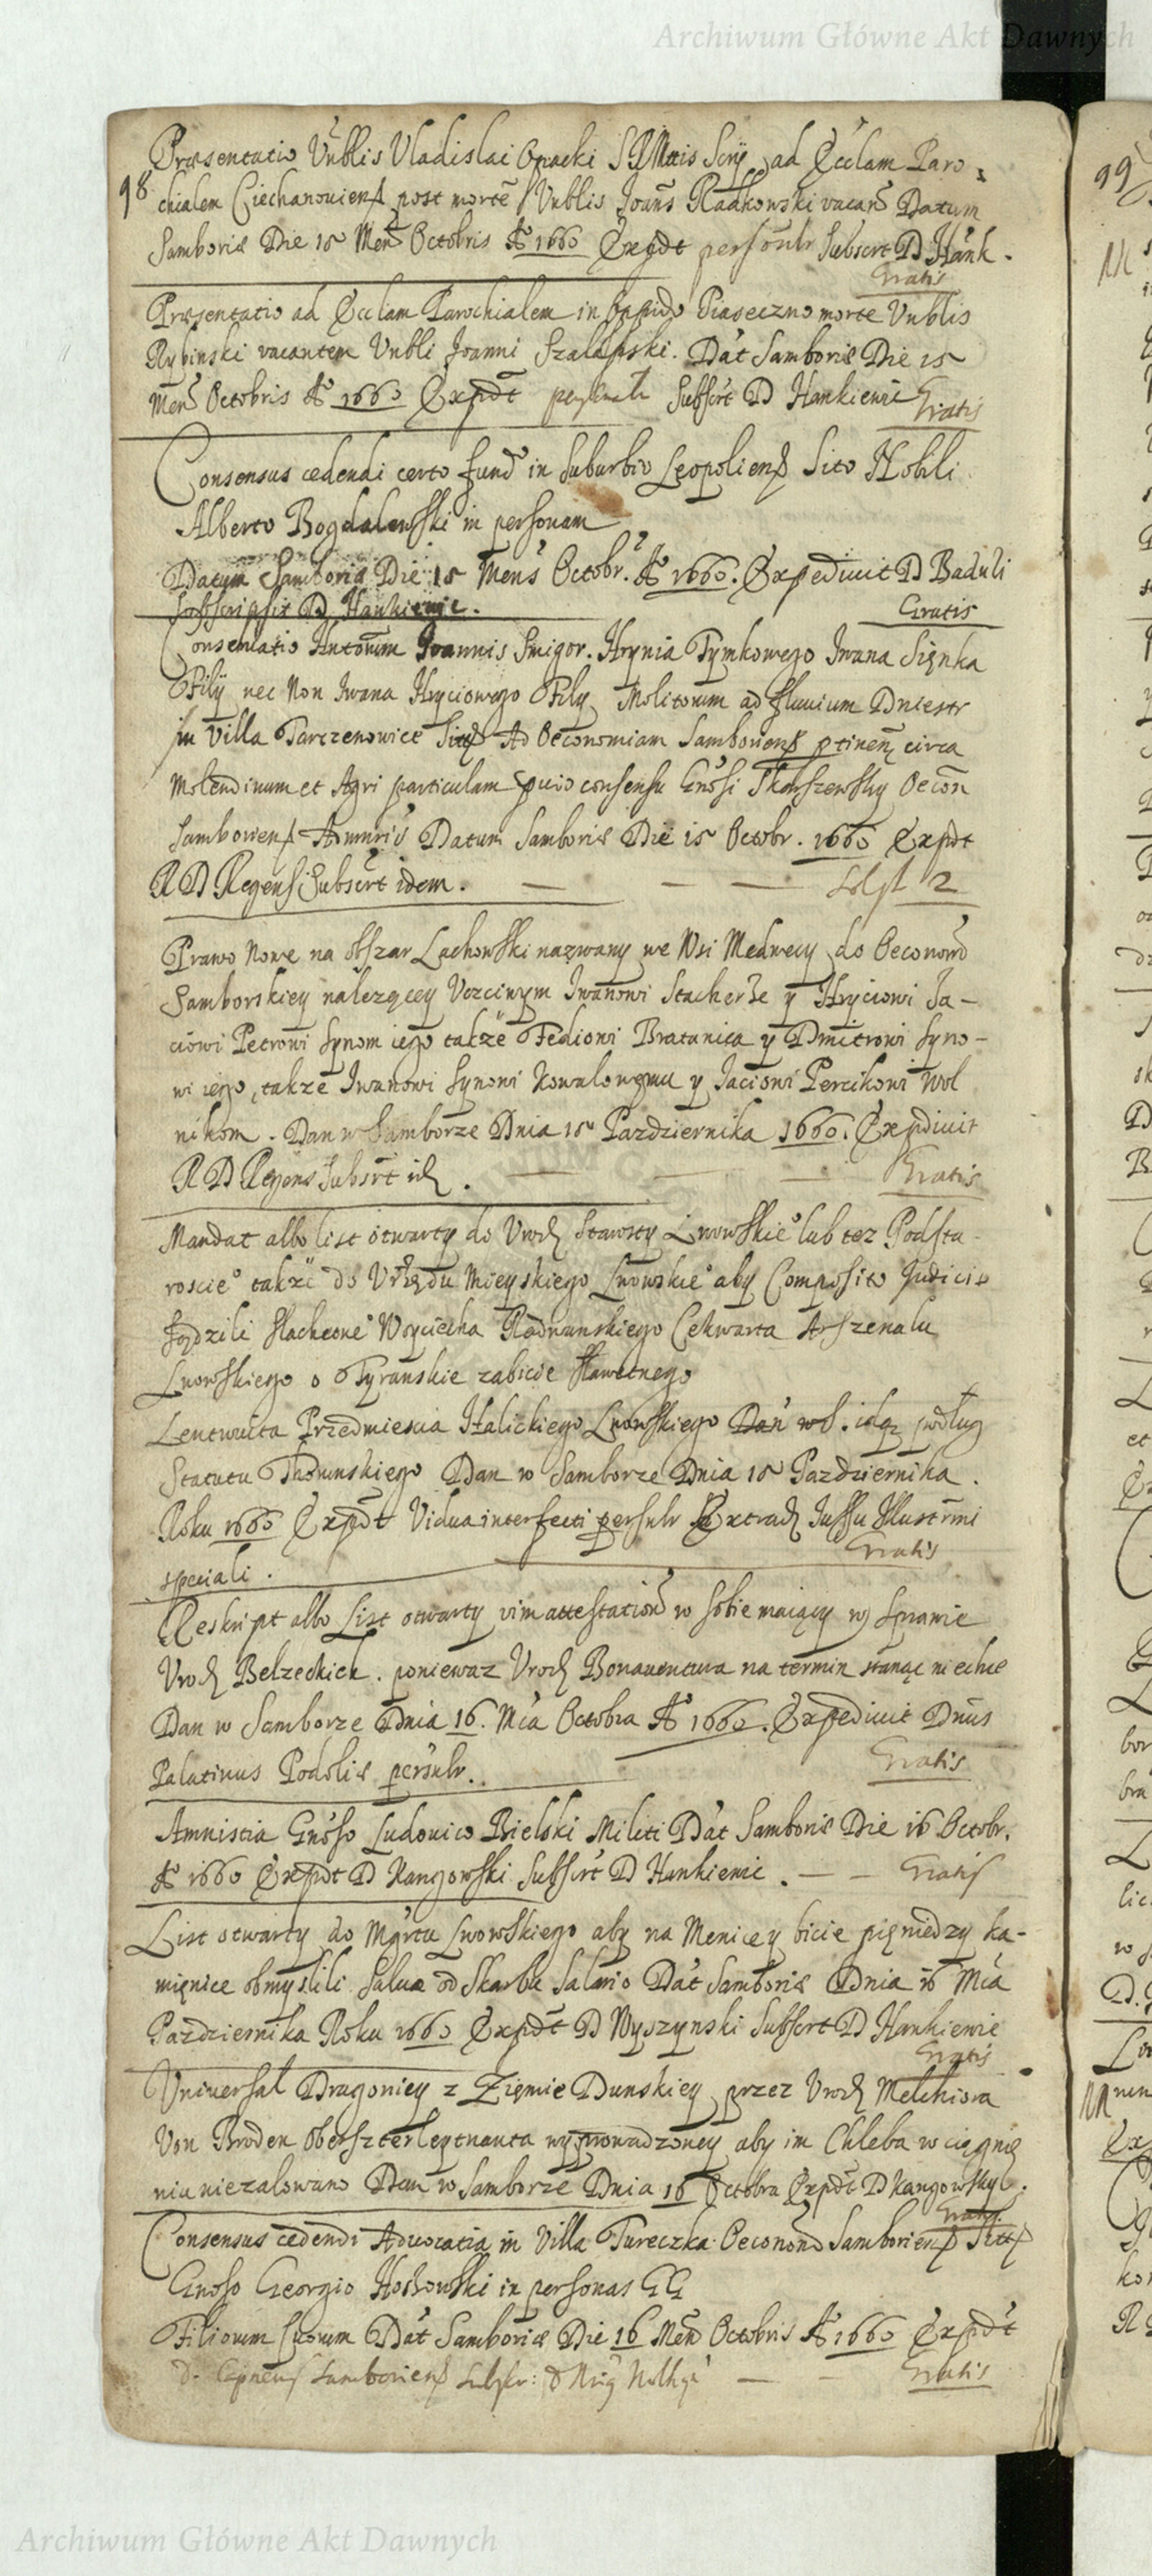 Archiwum Główne Akt Dawnych
Præsentatio Vnblis Vladislai Opacki S R Mttis Scrÿ ad Ecclam Paro
98
chialem Ciechanouiens post mortē Vnblis Joans Radkowski vacan Datum
Samboriæ Die 15 Mens Octobris Ao 1660 Expdt personlr Subscrt D Hank.
Gratis
Præsentatio ad Ecclam Parochialem in Oppido Piaseczno morte Vnblis
Rybinski vacantem Vnbli Joanni Szalapski. Dat Samboriæ Die 15
Mens Octobris Ao 1660 Expdt Subscrt D Hankiewic Gratis
Consensus cedendi certo fund in Suburbio Leopoliens Sito Nobli
Alberto Bogdalewski in personam
Datum Samboriæ Die 15 Mens Octobr. Ao 1660. Expediuit D Baduli
subscripsit D Hankiewic.
Gratis
Conseruatio Joannis Smigor. Hrynia Tymkowego Iwana Sięnka
Filÿ nec Non Iwana Hryciowego Filÿ Molitorum ad fluuium Dniestr
in Villa Tarczenowice Sitt Ad Oeconomiam Samboriens ptinen circa
Molendinum et Agri particulam puio consensu Gnosi Skarszewsky Oecon
Samboriens Datum Samboriæ Die 15 Octobr. 1660 Expdt
R D Regens Subscrt idem. — — — 2
Prawo Nowe na obszar Lachowski nazwany we Wsi Medwecy do Oeconom
Samborskiey nalezącey Vczciwym Iwanowi y Hryciowi Ia-
ciowi Petrowi synom iego także Fediowi Bratanica y Dmitrowi syno-
wi iego, takze Iwanowi synowi Kowalowemu y Iaciowi Percikowi Wol
nikom. Dan w Samborze Dnia 15 Pazdziernika 1660. Expediuit
R D Regens Subsrt id. — — — Gratis
Mandat albo list otwarty do Vrod Starosty Lwowskieo lub tez Podsta-
roscieo takze do Vrzędu Mieyskiego Lwowskieo aby Composito Judicio
sądzili slacheoneo Woyciecha Radwanskiego Cekwarta Arszenalu
Lwowskiego o Tyranskie zabicie sławetnego
Lentwuita Przedmiescia Halickiego Lwowskiego Dan
Statutu Thorunskiego Dan w Samborze Dnia 15 Pazdziernika.
Roku 1660 Expdt Vidua interfecti persnlr Extrad Jussu Illustrmi
Gratis
speciali.
Reskript albo List otwarty vim attestation w sobie maiący w Sprawie
Vrod Belzeckich. poniewaz Vrod Bonauentura na termin stanąc niechce
Dan w Samborze Dnia 16. Mca Octobra Ao 1660. Expediuit Dnus
Palatinus Podoliæ persnlr.
Gratis
Amnistia Gnoso Ludouico Bielski Militi Dat Samboriæ Die 16 Octobr.
Ao 1660 Expdt D Kangowski Subscrt D Hankiewic. — — Gratis
List otwarty do Mgrtu Lwowskiego aby na Menicey bicie pięniedzy ka-
mięnice obmyslili Saluo od Skarbu Salario Dat Samboriæ Dnia 16 Mca
Pazdziernika Roku 1660 Expdt D Wyszynski Subscrt D Hankiewic
Gratis
Vniuersał Dragoniey z Ziemie Dunskiey przez Vrod Melchiora
Von Broden Oberszterleytnanta wyprowadzoney aby im Chleba w ciągnię
niu niezalowano Dan w Samborze Dnia 16 Octobra Expdt D Kangowsky.
Gratis
Consensus cedendi Aduocatia in Villa Tureczka Oeconom Samboriens Sitt
Gnoso Georgio Hoszowski in personas GG
Filiorum Suorum Dat Samboriæ Die 16 Mens Octobris Ao 1660 Expdt
Samboriens — — Gratis
99
Archiwum Główne Akt Dawnych